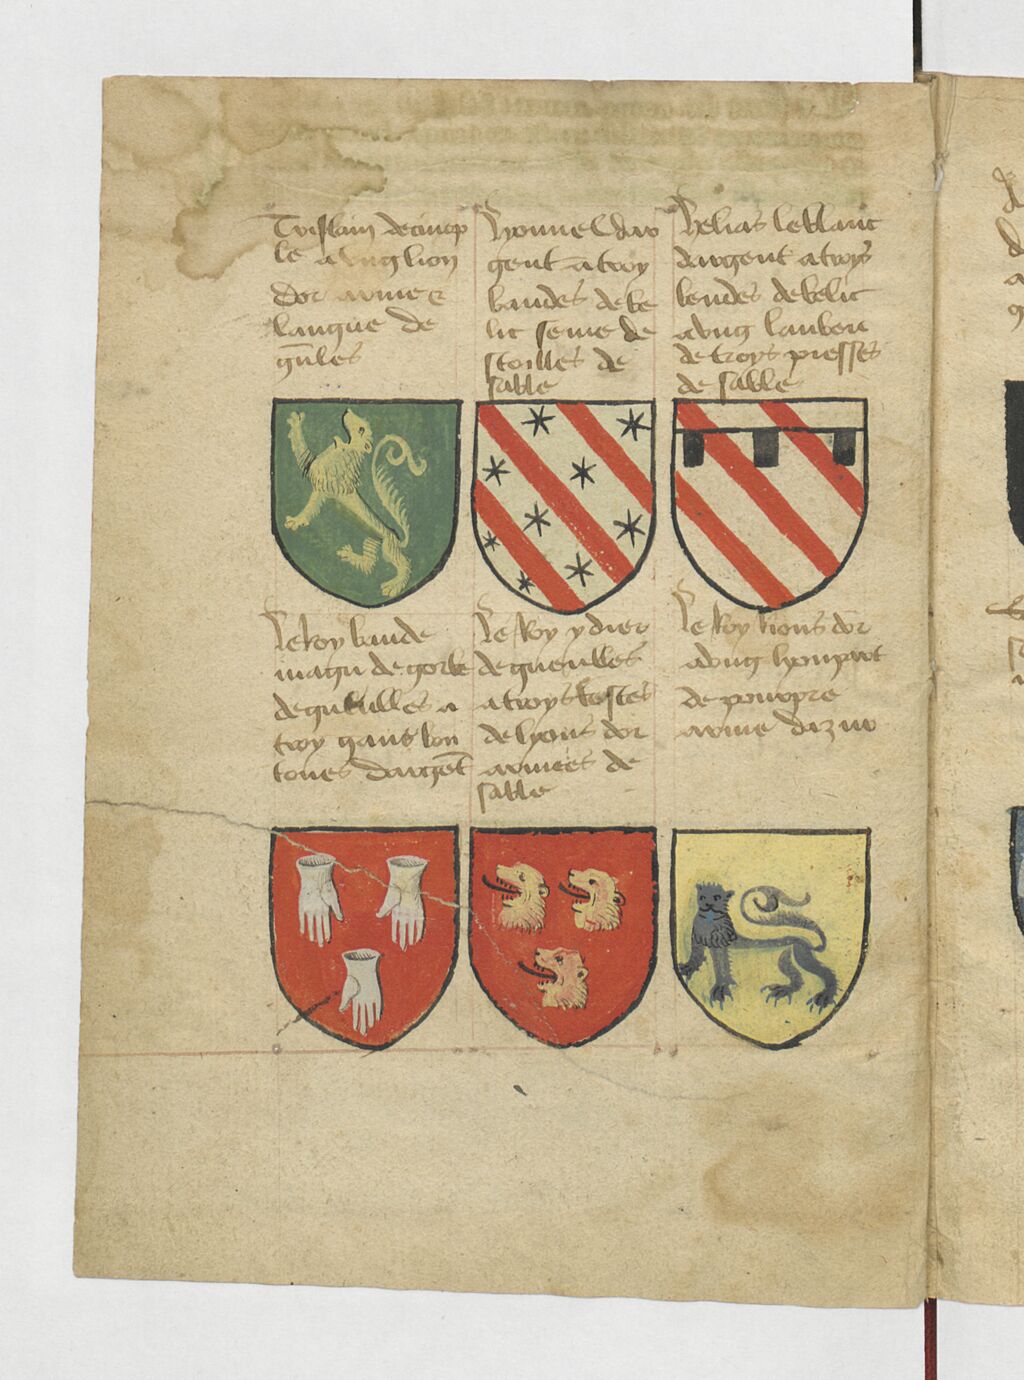 Tristain de cinop
le a ung lion
dor arme &
langue de
gules
Lyonnel dar
gent a troy
bandes de be
lic seme de
stoilles de
sable
Helias le blanc
dargent a troys
bendes de belic
a ung lanbeu
de troys piesses
de sable
Le Roy bande
magu de gorre
de gueulles a
troy gans bou
tones dargēt
Le Roy ydier
de gueulles
a troys testes
de lyons dor
armees de
sable
Le Roy Rions dor
a ung lyonpart
de pourpre
arme dazur